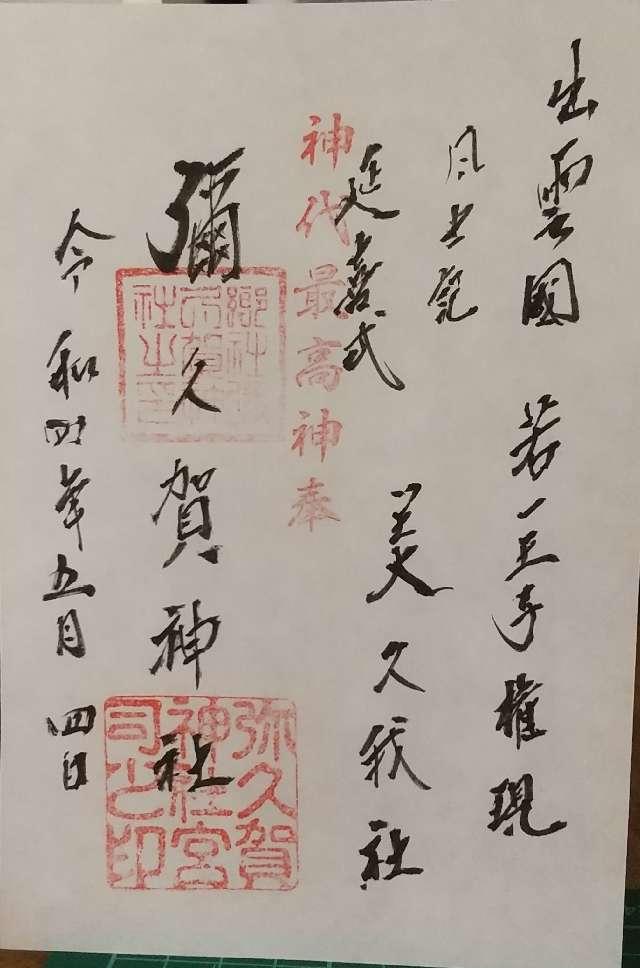 出雲國 若一王子權現
風土記
延喜式 美久我社
神代最高神奉
彌久賀神社
弥久賀
神社宮
司之印
令和四年五月四日